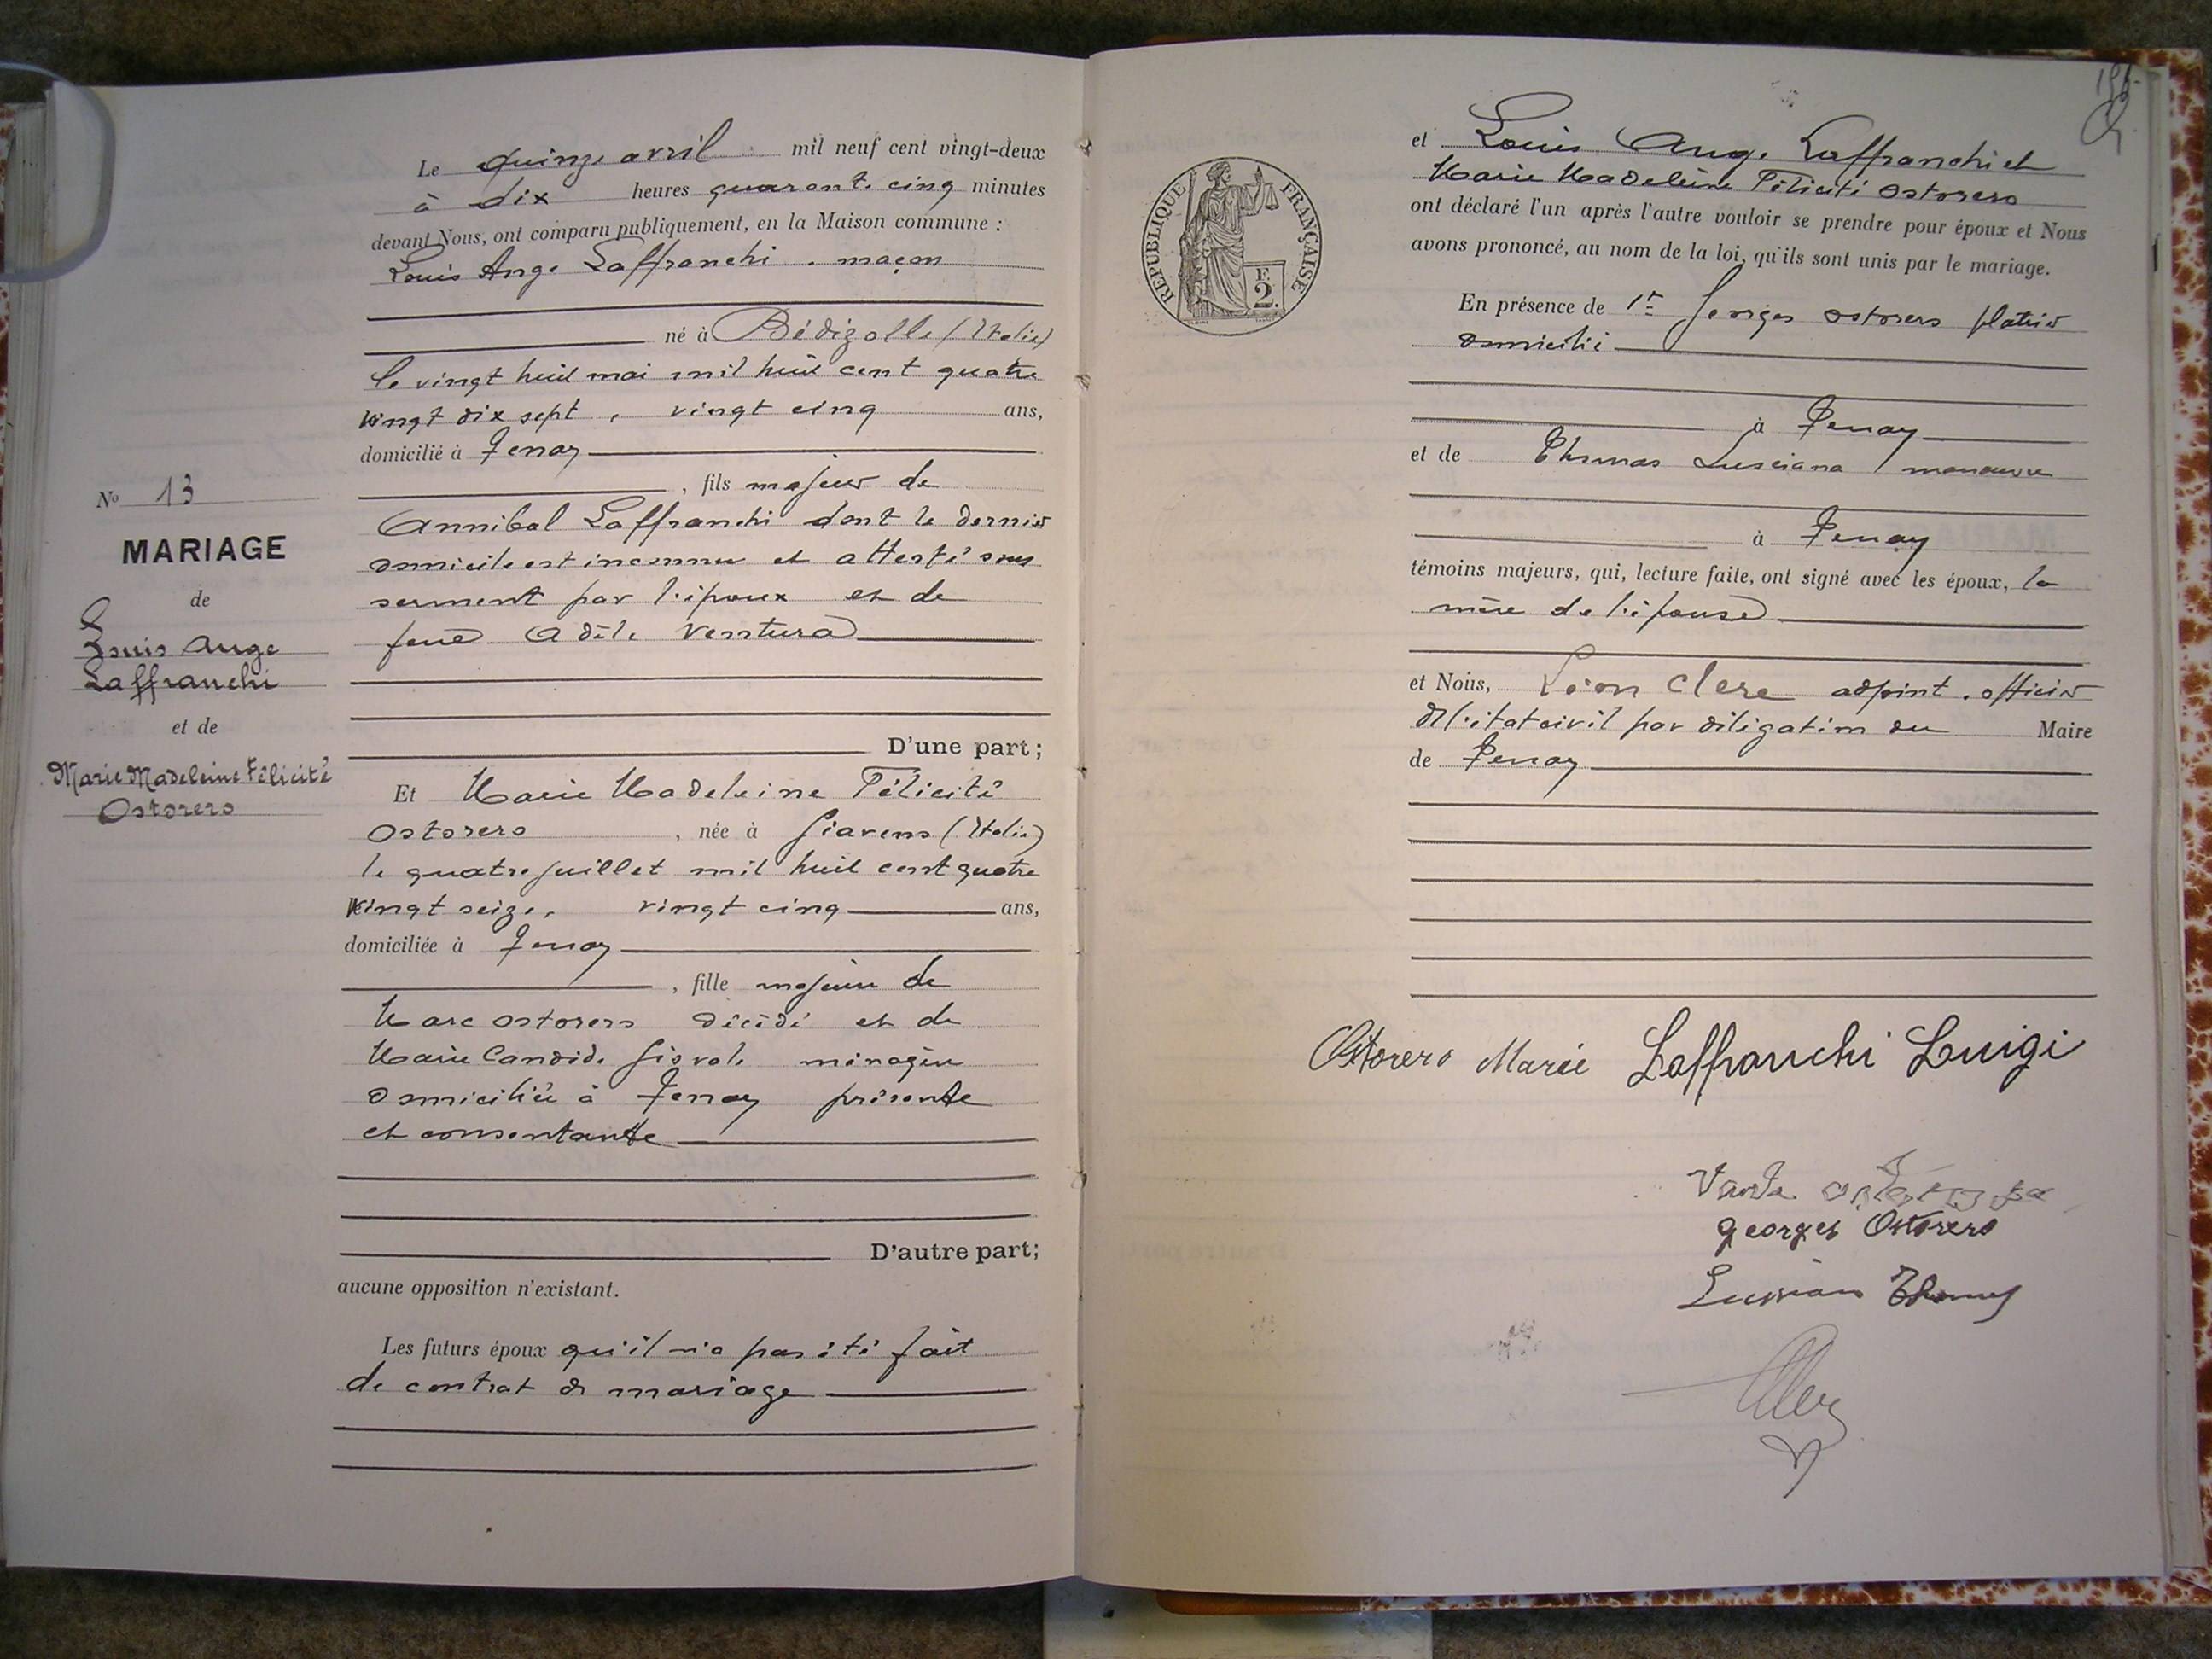 Le quinze avril mil neuf cent vingt-deux
à dix heures quarante cinq minutes
devant Nous, ont comparu publiquement, en la Maison commune :
Louis Ange Laffranchi . maçon
né à Bédizolle (Italie)
le vingt huit mai mil huit cent quatre
vingt dix sept , vingt cinq ans,
domicilié à Tenay
, fils majeur de
Annibal Laffranchi dont le dernier
domicile est inconnu et attesté sous
serment par l'époux et de
feue Adèle Ventura
D'une part;
Et Marie Madeleine Félicité
Ostorero , née à Giaveno (Italie)
le quatre juillet mil huit cent quatre
vingt seize, vingt cinq ans,
domiciliée à Tenay
, fille majeure de
Marc Ostorero décédé et de
Marie Candide ménagère
domiciliée à Tenay présente
et consentante
D'autre part;
aucune opposition n'existant.
Les futurs époux qu'il n'a pas été fait
de contrat de mariage
No 13
MARIAGE
de
Louis Ange
Laffranchi
et de
Marie Madeleine Félicité
Ostorero
REPUBLIQUE FRANÇAISE
F.
2.
et Louis Ange Laffranchi et
Marie Madeleine Félicité Ostorero
ont déclaré l'un après l'autre vouloir se prendre pour époux et Nous
avons prononcé, au nom de la loi, qu'ils sont unis par le mariage.
En présence de Georges Ostorero plâtrier
domicilié
à Tenay
et de Thomas Lusciana manœuvre
à Tenay
témoins majeurs, qui, lecture faite, ont signé avec les époux, la
mère de l'épouse
et Nous, Léon Clerc adjoint . officier
de l'état civil par délégation du Maire
de Tenay
Ostorero Marie Laffranchi Luigi
georges Ostorero